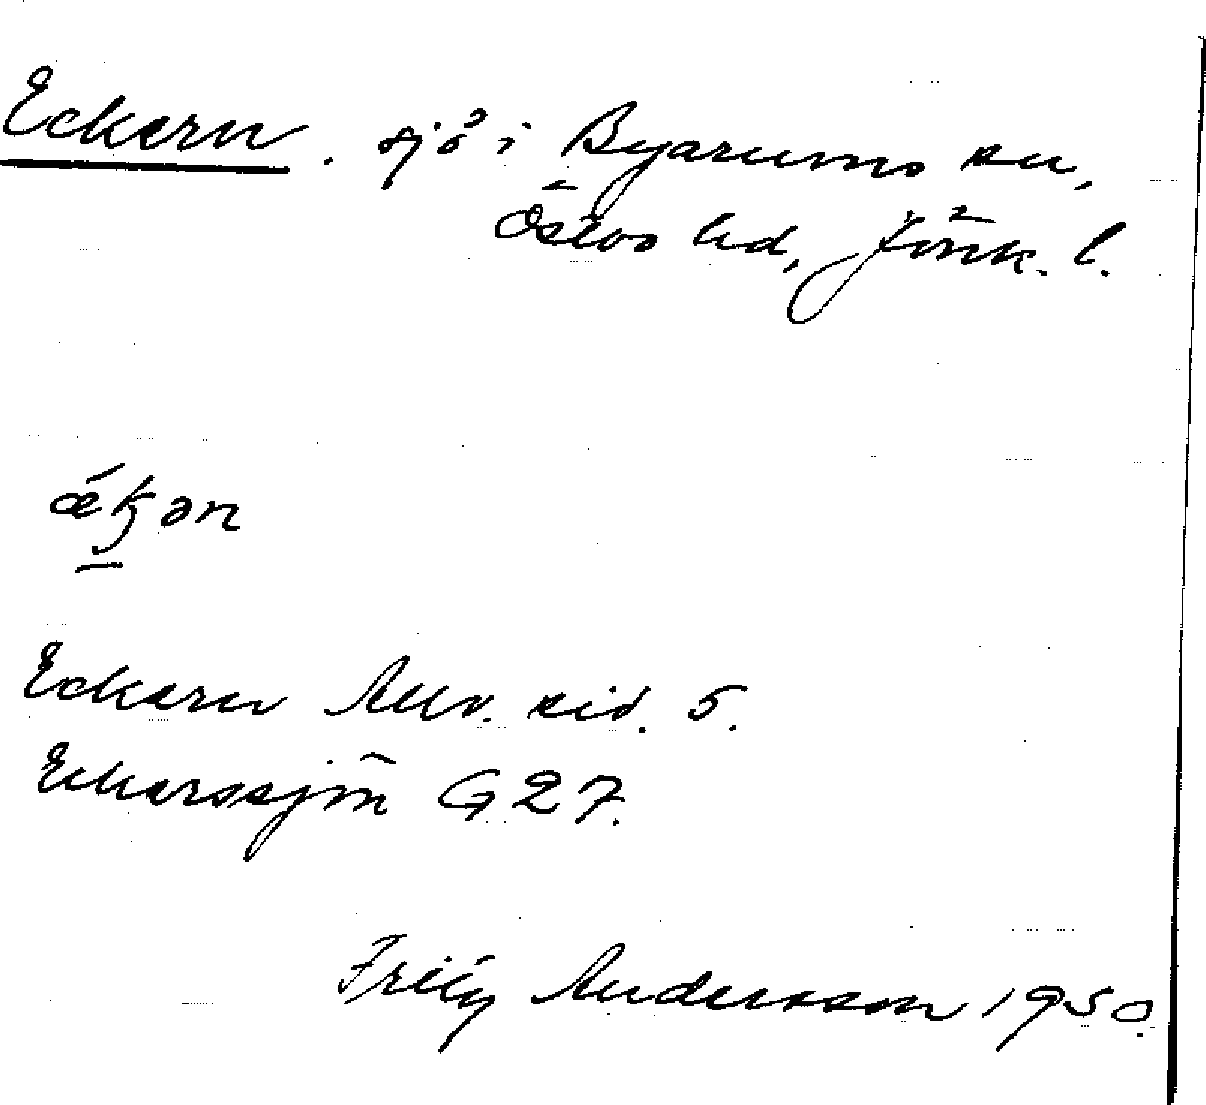 Eckern. sjö i Byarums sn,
Östbo hd, Jönk. l.
ǽkən
Eckern Allv. sid. 5.
Eckerssjön G 27.
Frity Andersson 1950.